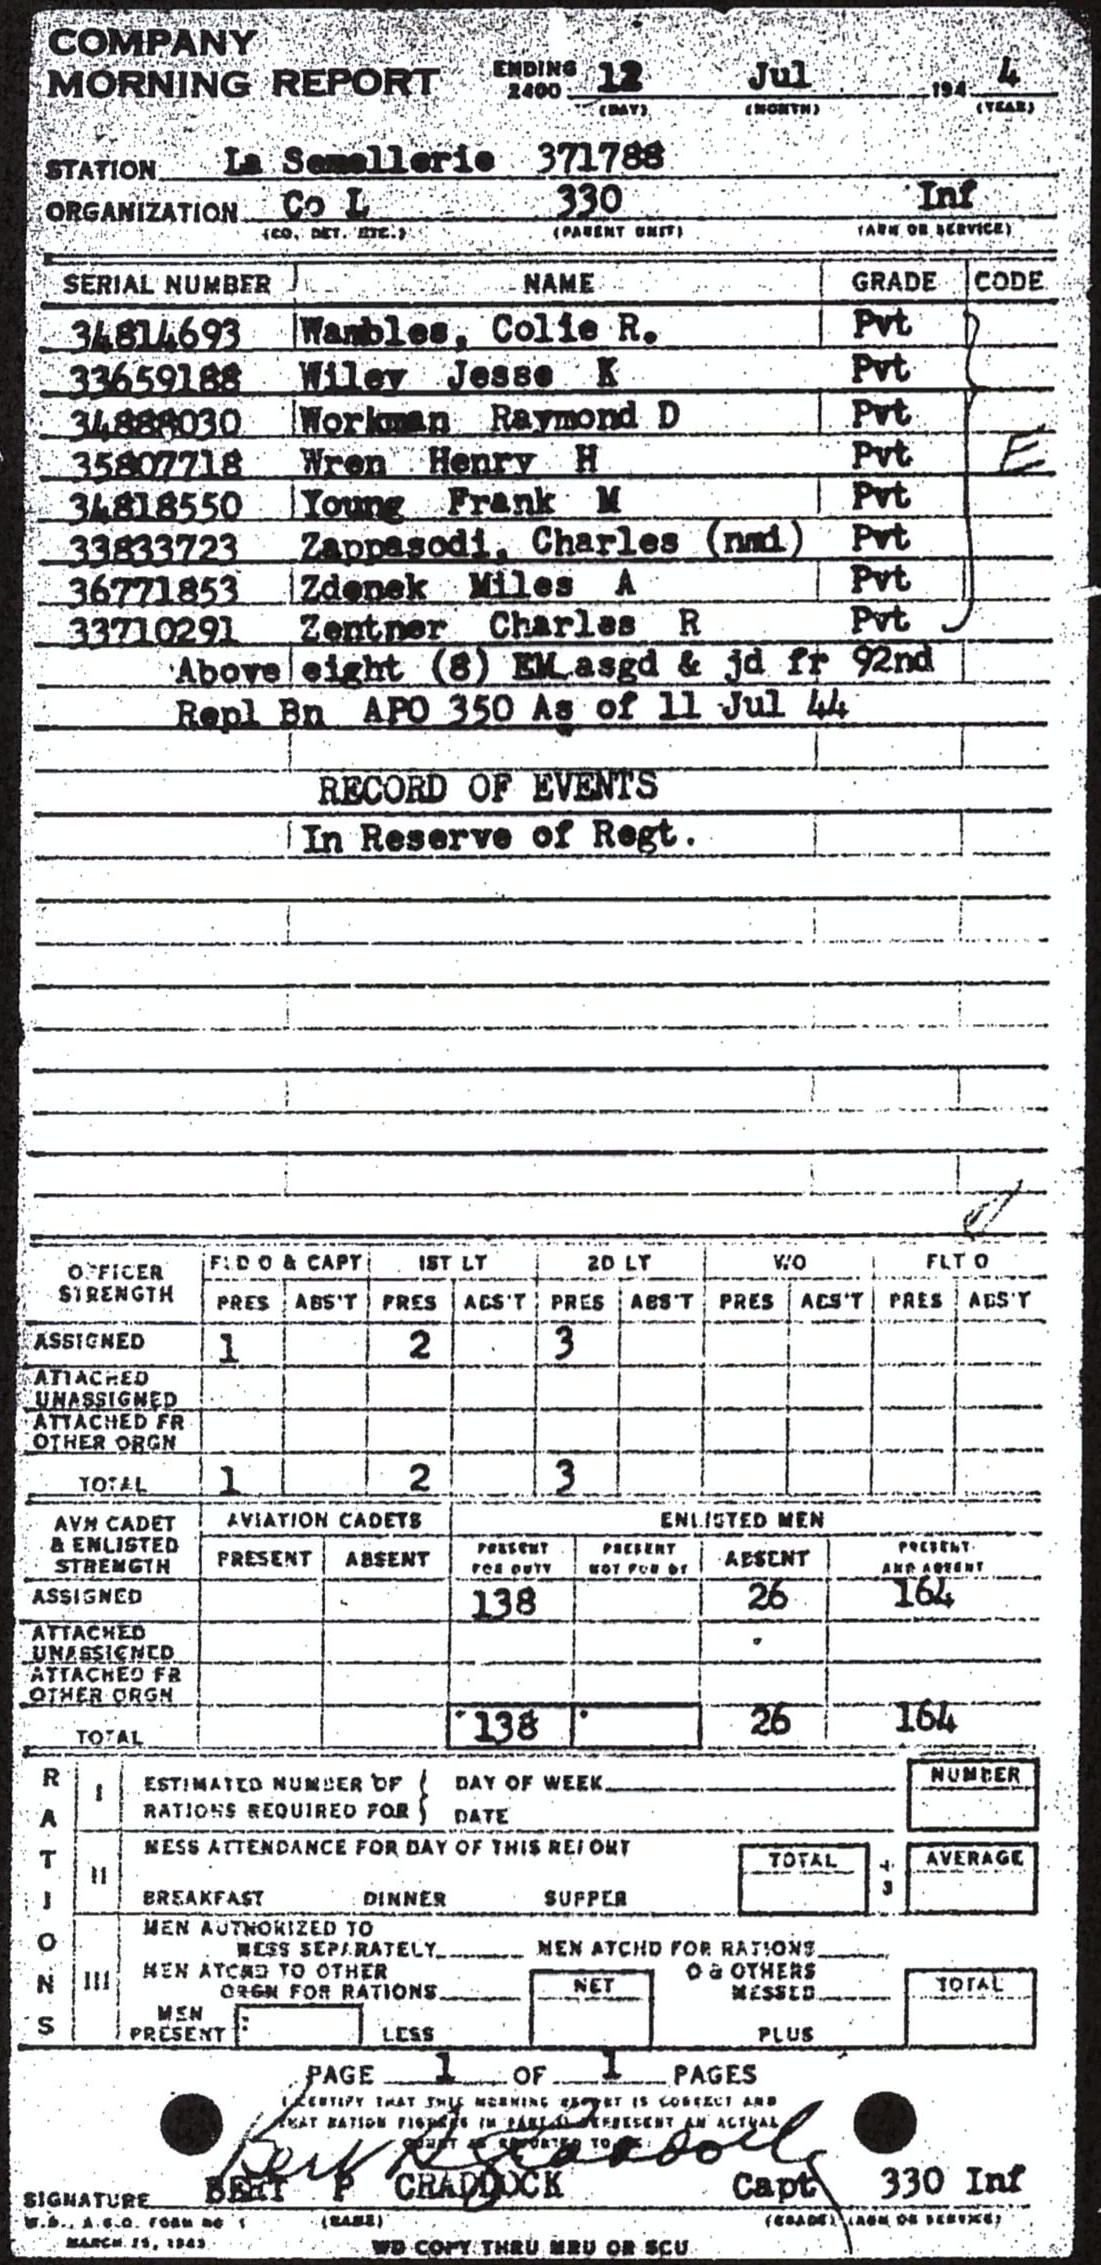 COMPANY
MORNING REPORT ENDING 2400 12 Jul 194 4
(DAY) (MONTH) (YEAR)
STATION La Semellerie 371788
ORGANIZATION Co L 330 Inf
(CO, DET. ETC.) (PARENT UNIT) (ARM OR SERVICE)
SERIAL NUMBER NAME GRADE CODE
34814693 Wambles, Colie R. Pvt
33659188 Wiley Jesse K Pvt
34888030 Workman Raymond D Pvt
35807718 Wren Henry H Pvt E
34818550 Young Frank M Pvt
33833723 Zappasodi, Charles (nmi) Pvt
36771853 Zdenek Miles A Pvt
33710291 Zentner Charles R Pvt
Above eight (8) EM asgd & jd fr 92nd
Repl Bn APO 350 As of 11 Jul 44
RECORD OF EVENTS
In Reserve of Regt.
OFFICER STRENGTH FLD O & CAPT 1ST LT 2D LT W/O FLT O
PRES ABS'T PRES ABS'T PRES ABS'T PRES ABS'T PRES ABS'T
ASSIGNED 1 2 3
ATTACHED UNASSIGNED
ATTACHED FR OTHER ORGN
TOTAL 1 2 3
AVN CADET & ENLISTED STRENGTH AVIATION CADETS ENLISTED MEN
PRESENT ABSENT PRESENT FOR DUTY PRESENT NOT FOR DY ABSENT PRESENT AND ABSENT
ASSIGNED 138 26 164
ATTACHED UNASSIGNED
ATTACHED FR OTHER ORGN
TOTAL 138 26 164
RATIONS
I ESTIMATED NUMBER OF DAY OF WEEK NUMBER
RATIONS REQUIRED FOR DATE
II MESS ATTENDANCE FOR DAY OF THIS REPORT TOTAL ÷ 3 AVERAGE
BREAKFAST DINNER SUPPER
III MEN AUTHORIZED TO
MESS SEPARATELY MEN ATCHD FOR RATIONS
MEN ATCHD TO OTHER O & OTHERS
ORGN FOR RATIONS NET MESSED TOTAL
MEN PRESENT LESS PLUS
PAGE 1 OF 1 PAGES
I CERTIFY THAT THIS MORNING REPORT IS CORRECT AND
THAT RATION FIGURES IN PART II REPRESENT AN ACTUAL
COUNT AS REPORTED TO ME.
Bert P Craddock
SIGNATURE BERT P CRADDOCK Capt 330 Inf
W.D., A.G.O. FORM NO 1 (NAME) (GRADE) (ARM OR SERVICE)
MARCH 15, 1943
WD COPY THRU MRU OR SCU